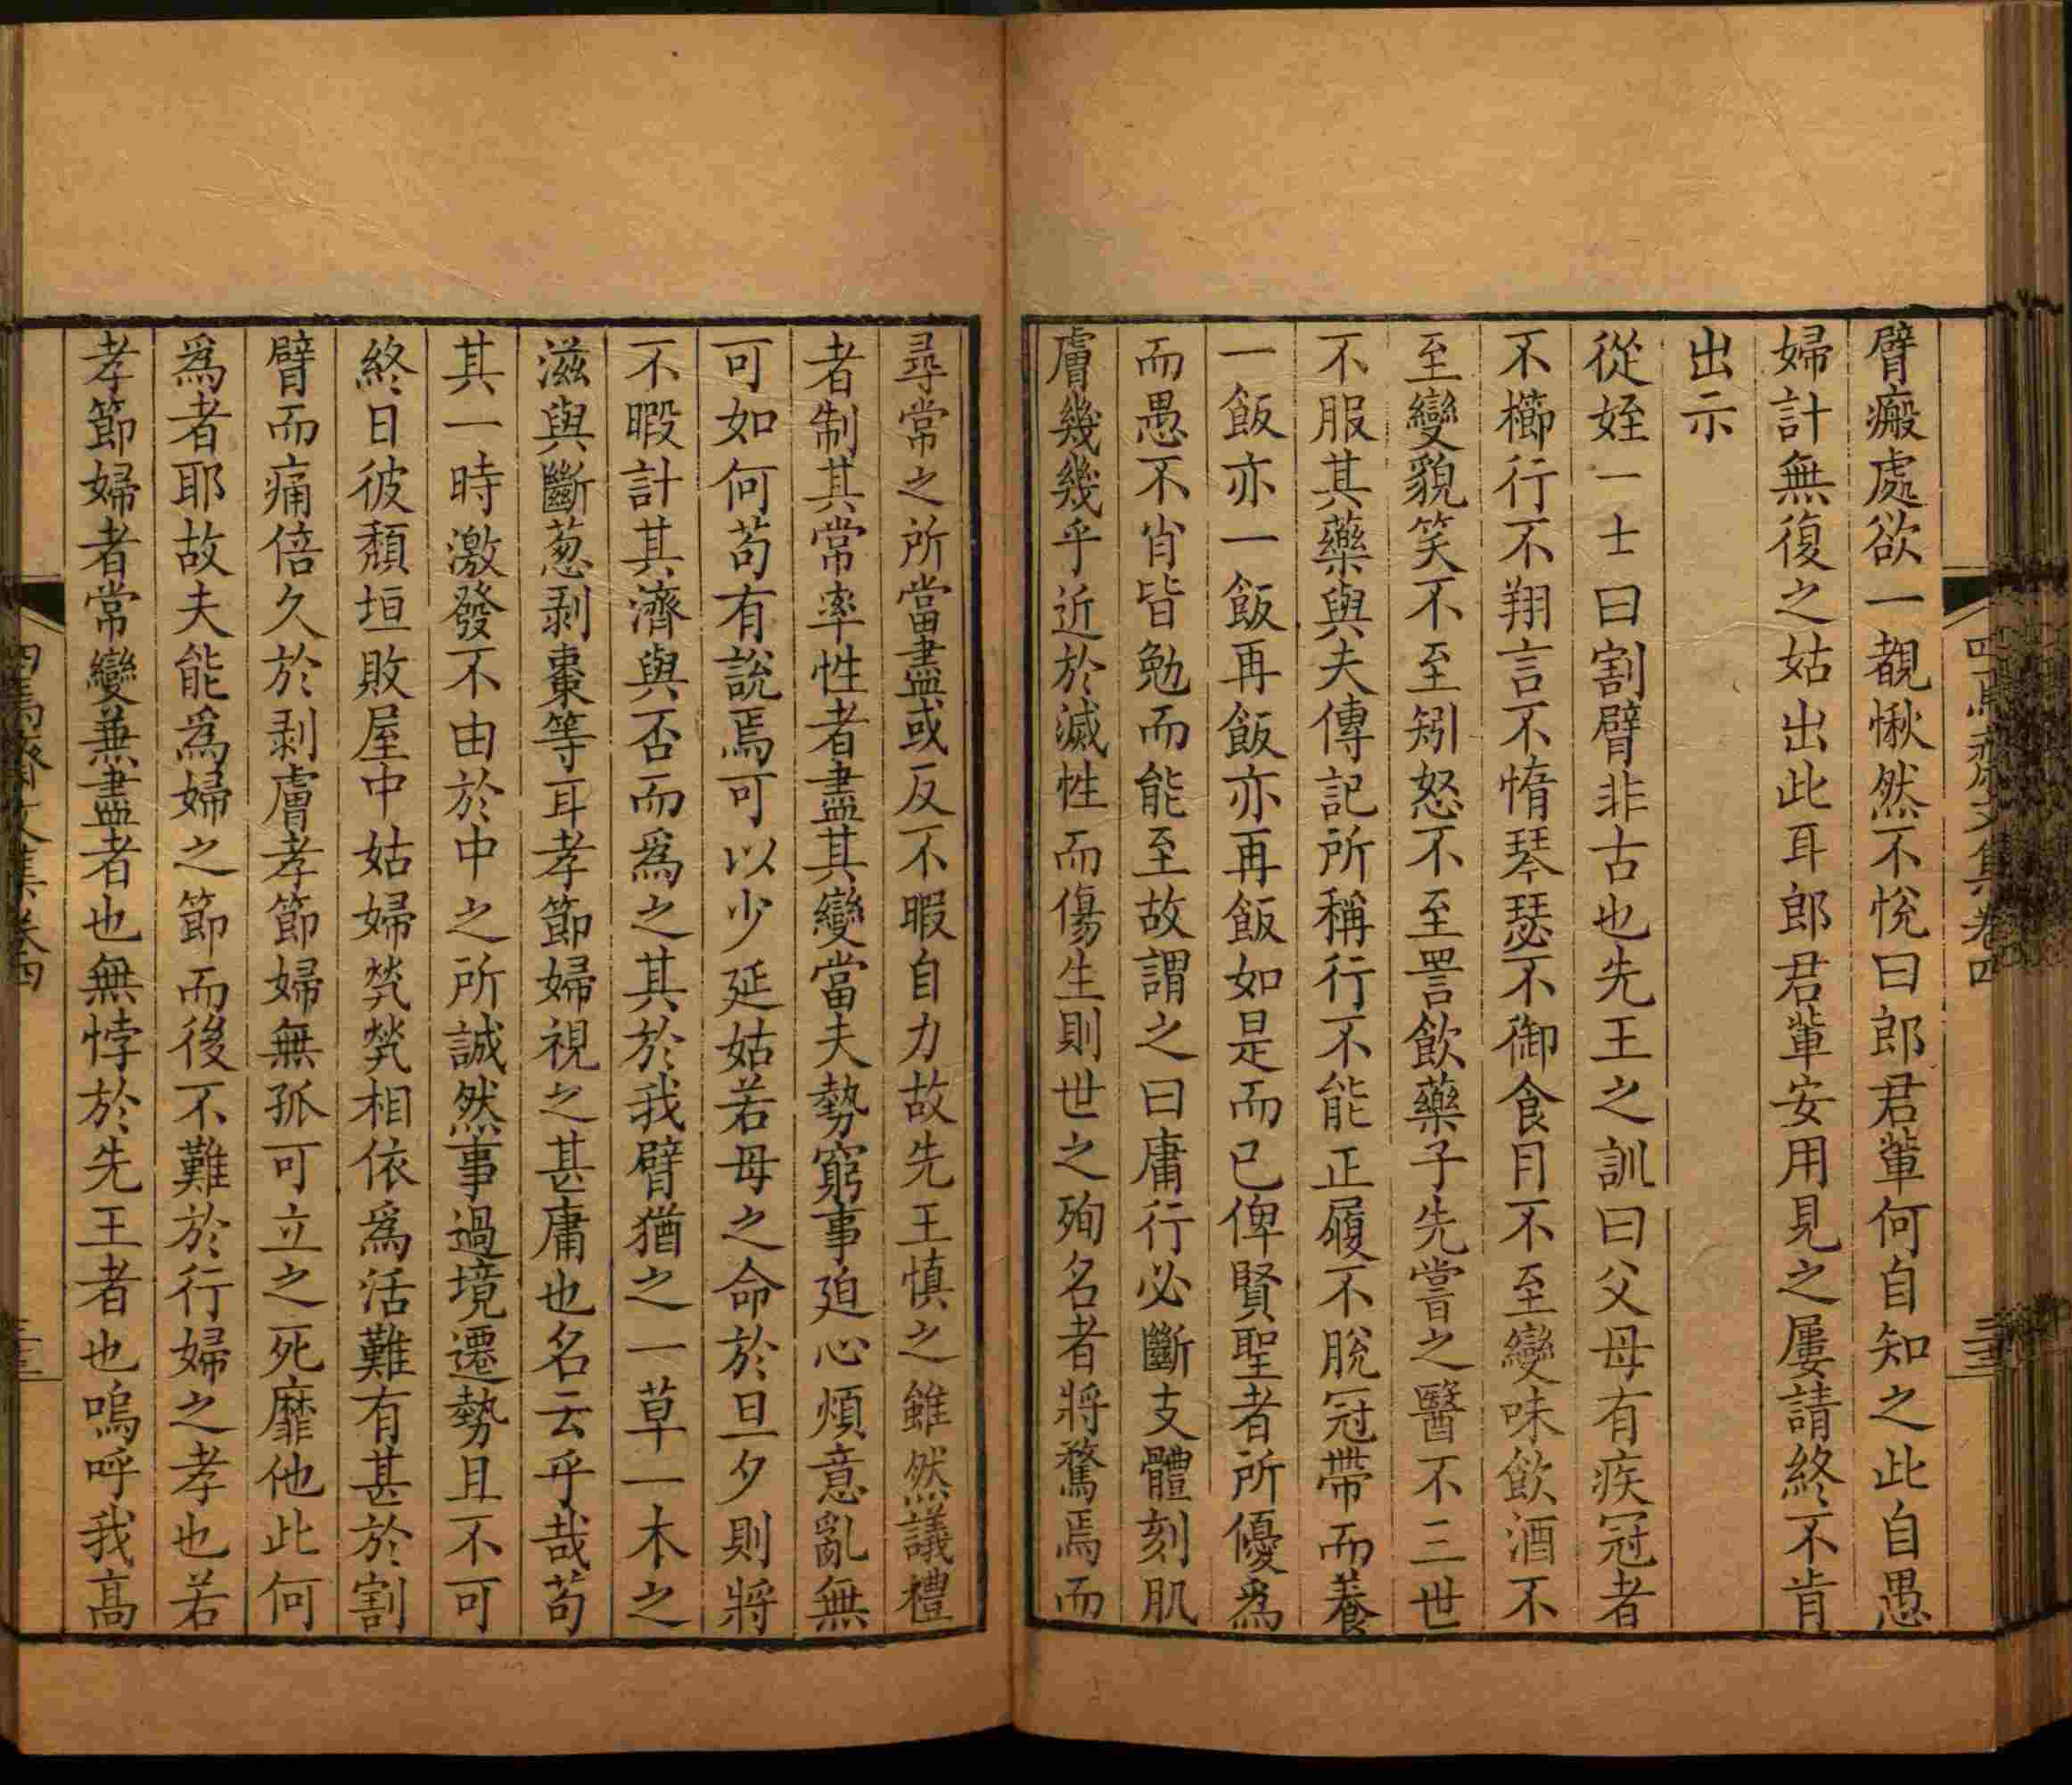 臂瘢處欲一覩愀然不悅曰郎君輩何自知之此自愚
婦計無復之姑出此耳郎君輩安用見之屢請終不肯
出示
從姪一士曰割臂非古也先王之訓曰父母有疾冠者
不櫛行不翔言不惰琴瑟不御食肉不至變味飲酒不
至變貌笑不至矧怒不至詈飲藥子先嘗之醫不三世
不服其藥與夫傳記所稱行不能正履不脫冠帶而養
一飯亦一飯再飯亦再飯如是而已俾賢聖者所優為
而愚不肖皆勉而能至故謂之曰庸行必斷支體刻肌
膚幾幾乎近於滅性而傷生則世之殉名者將騖焉而
尋常之所當盡或反不暇自力故先王慎之雖然議禮
者制其常率性者盡其變當夫勢窮事迫心煩意亂無
可如何苟有說焉可以少延姑若母之命於旦夕則將
不暇計其濟與否而為之其於我臂猶之一草一木之
滋與斷葱剥棗等耳孝節婦視之甚庸也名云乎哉苟
其一時激發不由於中之所誠然事過境遷勢且不可
終日彼頹垣敗屋中姑婦煢煢相依為活難有甚於割
臂而痛倍久於剥膚孝節婦無孤可立之死靡他此何
為者耶故夫能為婦之節而後不難於行婦之孝也若
孝節婦者常變兼盡者也無悖於先王者也嗚呼我高